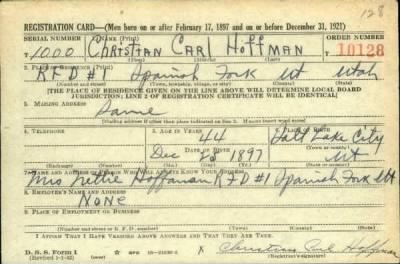 128
REGISTRATION CARD—(Men born on or after February 17, 1897 and on or before December 31, 1921)
SERIAL NUMBER 1. NAME (Print) ORDER NUMBER
T 1000 Christian Carl Hoffman 10128
2. PLACE OF RESIDENCE (Print)
RFD #1 Spanish Fork Ut Utah
[THE PLACE OF RESIDENCE GIVEN ON THE LINE ABOVE WILL DETERMINE LOCAL BOARD
JURISDICTION; LINE 2 OF REGISTRATION CERTIFICATE WILL BE IDENTICAL]
3. MAILING ADDRESS
Same
[Mailing address if other than place indicated on line 2. If same insert word same]
4. TELEPHONE 5. AGE IN YEARS 6. PLACE OF BIRTH
44 Salt Lake City
DATE OF BIRTH (Town or county)
Dec 25 1897 Ut
(Exchange) (Number) (Mo.) (Day) (Yr.) (State or country)
7. NAME AND ADDRESS OF PERSON WHO WILL ALWAYS KNOW YOUR ADDRESS
Mrs Nettie Hoffman RFD #1 Spanish Fork Ut
8. EMPLOYER'S NAME AND ADDRESS
None
9. PLACE OF EMPLOYMENT OR BUSINESS
(Number and street or R. F. D. number) (Town) (County) (State)
I AFFIRM THAT I HAVE VERIFIED ABOVE ANSWERS AND THAT THEY ARE TRUE.
D. S. S. Form 1
(Revised 1-1-42) GPO X Christian Carl Hoffman
(Registrant's signature)